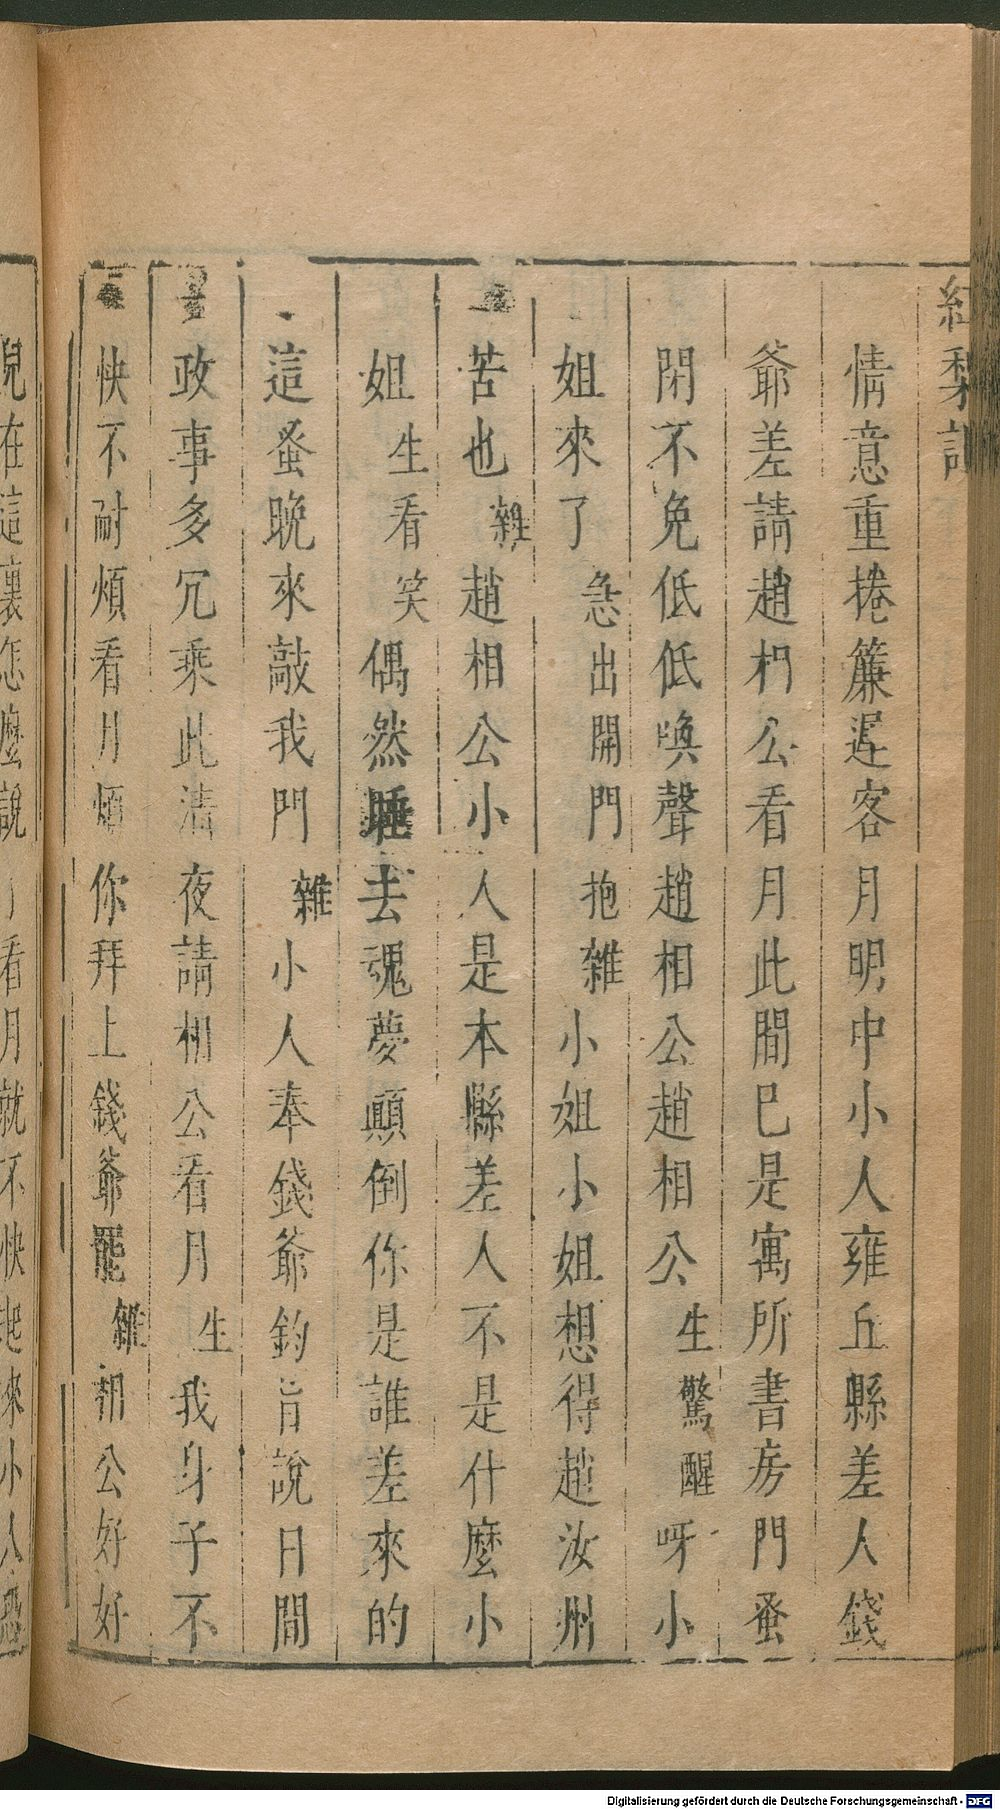 紅梨記
情意重捲簾遲客月明中小人雍丘縣差人錢
爺差請趙相公看月此間巳是寓所書房門蚤
閉不免低低喚聲趙相公趙相公生驚醒呀小
姐來了急出開門抱雜小姐小姐想得趙汝州
苦也雜趙相公小人是本縣差人不是什麼小
姐生看笑偶然睡去魂夢顚倒你是誰差來的
這蚤晚來敲我門雜小人奉錢爺鈞旨說日間
政事多冗乘此清夜請相公看月生我身子不
快不耐煩看月煩你拜上錢爺罷雜相公好好
兒在這裏怎麼說看月就不快起來小人
Digitalisierung gefördert durch die Deutsche Forschungsgemeinschaft - DFG